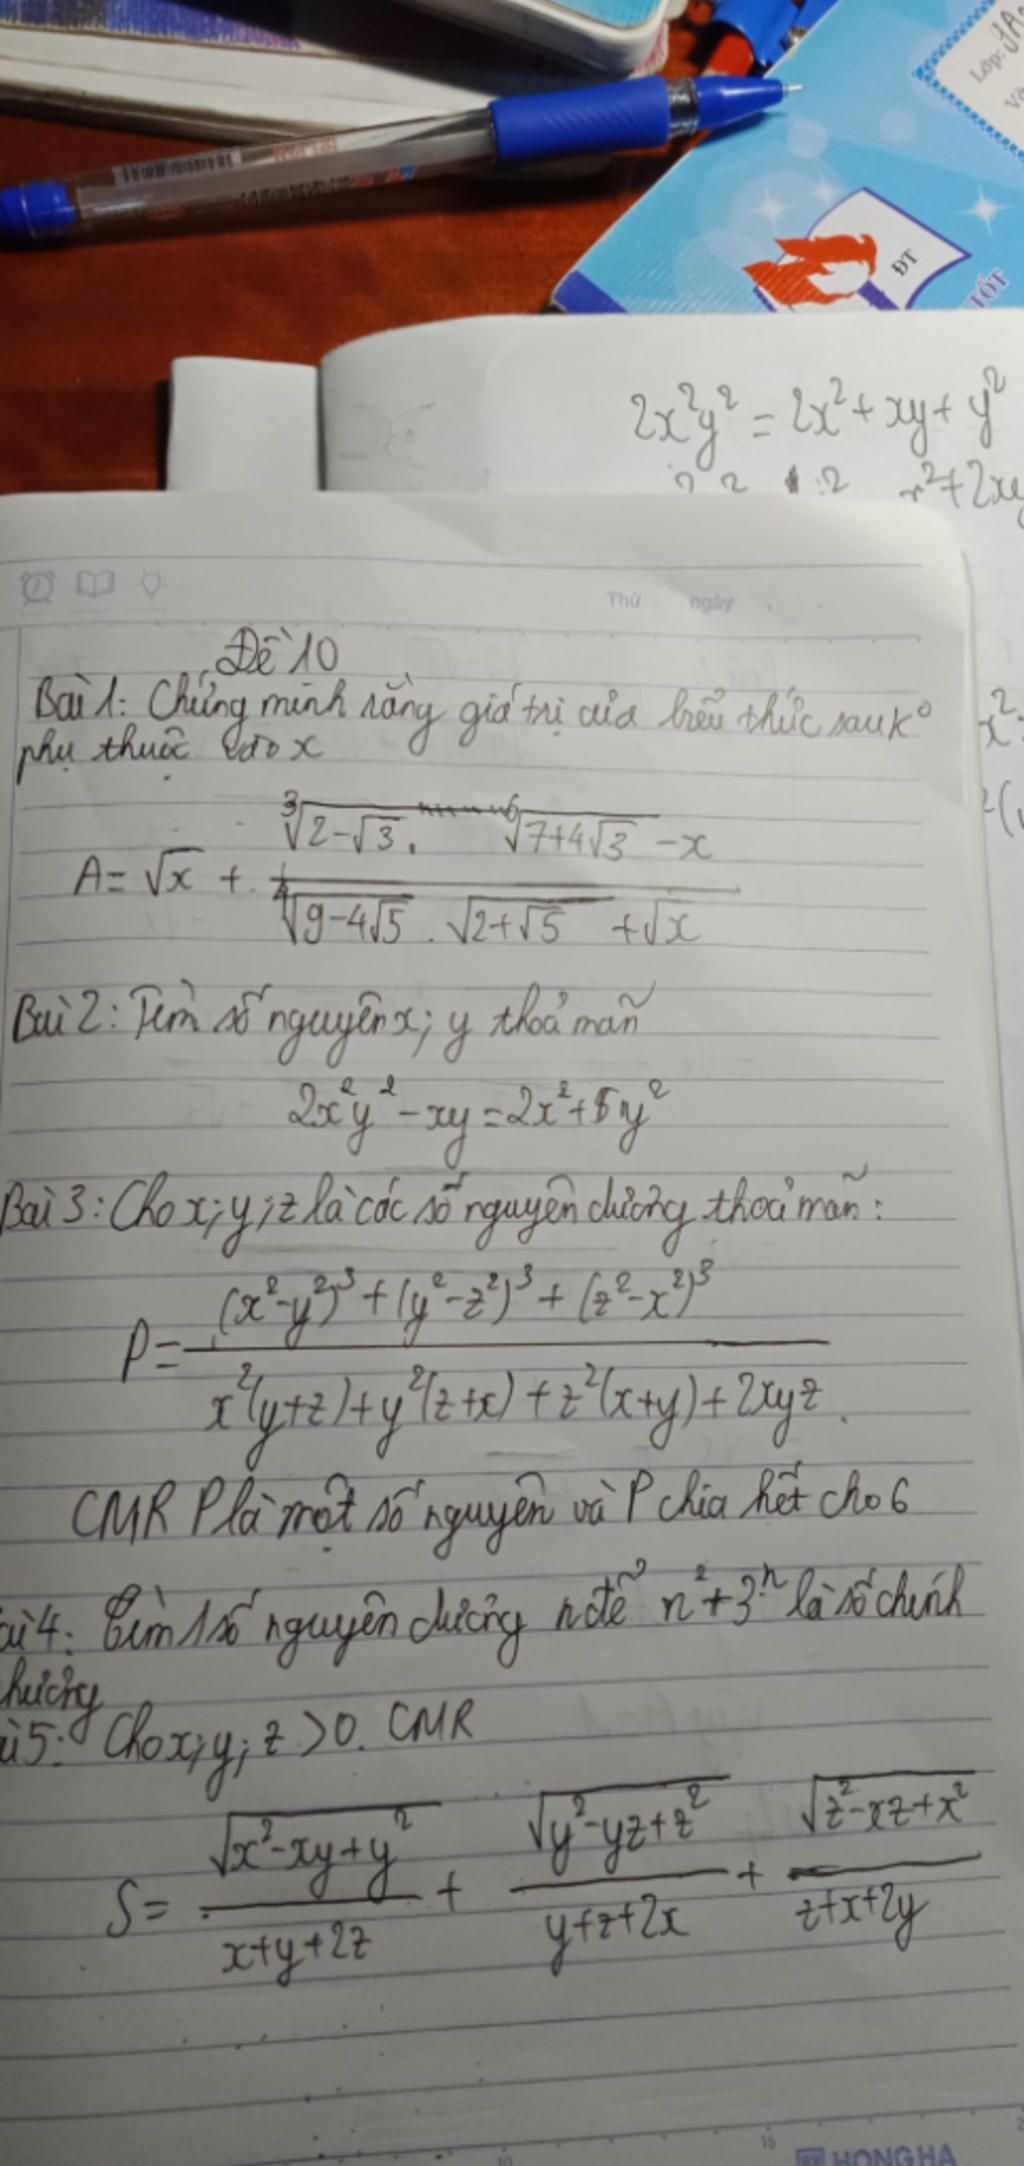 Lớp: 9A
ĐT
TỐT
2x²y² = 2x² + xy + y²
x² + 2xy
Thứ ngày
Đề 10
Bài 1: Chứng minh rằng giá trị của biểu thức sau k°
phụ thuộc vào x
A = √x + (∛(2-√3) . ⁶√(7+4√3) - x) / (⁴√(9-4√5) . √(2+√5) + √x)
Bài 2: Tìm số nguyên x; y thoả mãn
2x²y² - xy = 2x² + 5y²
Bài 3: Cho x; y; z là các số nguyên dương thoả mãn:
P = ((x²-y²)³ + (y²-z²)³ + (z²-x²)³) / (x²(y+z) + y²(z+x) + z²(x+y) + 2xyz).
CMR P là một số nguyên và P chia hết cho 6
ài 4: Tìm 1 số nguyên dương n để n² + 3ⁿ là số chính
hương
i 5: Cho x; y; z > 0. CMR
S = √(x²-xy+y²) / (x+y+2z) + √(y²-yz+z²) / (y+z+2x) + √(z²-xz+x²) / (z+x+2y)
10 15 2
HONG HA